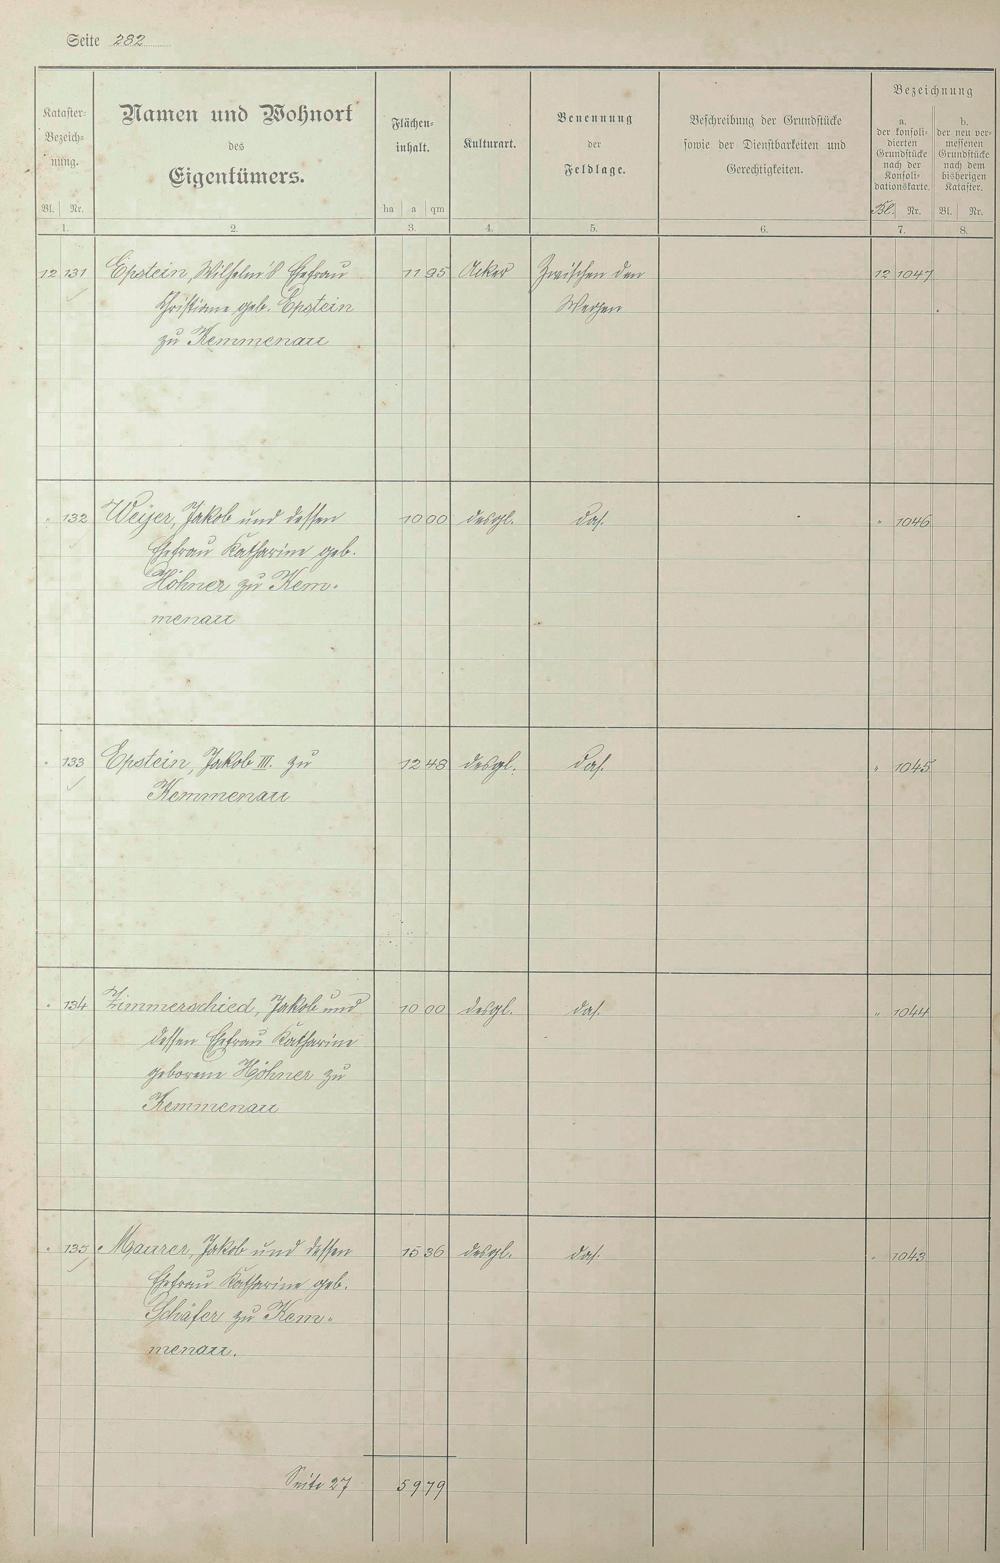 Seite 282
Kataster-
Bezeich-
nung.
Bl. Nr.
1.
Namen und Wohnort
des
Eigentümers.
2.
Flächen-
inhalt.
ha a qm
3.
Kulturart.
4.
Benennung
der
Feldlage.
5.
Beschreibung der Grundstücke
sowie der Dienstbarkeiten und
Gerechtigkeiten.
6.
Bezeichnung
a.
der konsoli-
dierten
Grundstücke
nach der
Konsoli-
dationskarte.
Bl. Nr.
7.
b.
der neu ver-
messenen
Grundstücke
nach dem
bisherigen
Kataster.
Bl. Nr.
8.
12 131 Epstein, Wilhelm's Ehefrau 11 95 Acker Zwischen den 12 1047
Christiane geb. Epstein
zu Kemmenau
" 132 Weyer, Jakob und dessen 10 00 desgl. das. " 1046
Ehefrau Katharine geb.
Höhner zu Kem-
menau
" 133 Epstein, Jakob III. zu 12 48 desgl. das. " 1045
Kemmenau
" 134 Zimmerschied, Jakob und 10 00 desgl. das. " 1044
dessen Ehefrau Katharine
geborene Höhner zu
Kemmenau
" 135 Maurer, Jakob und dessen 15 36 desgl. das. " 1043
Ehefrau Katharine geb.
Schäfer zu Kem-
menau.
Seite 27 59 79